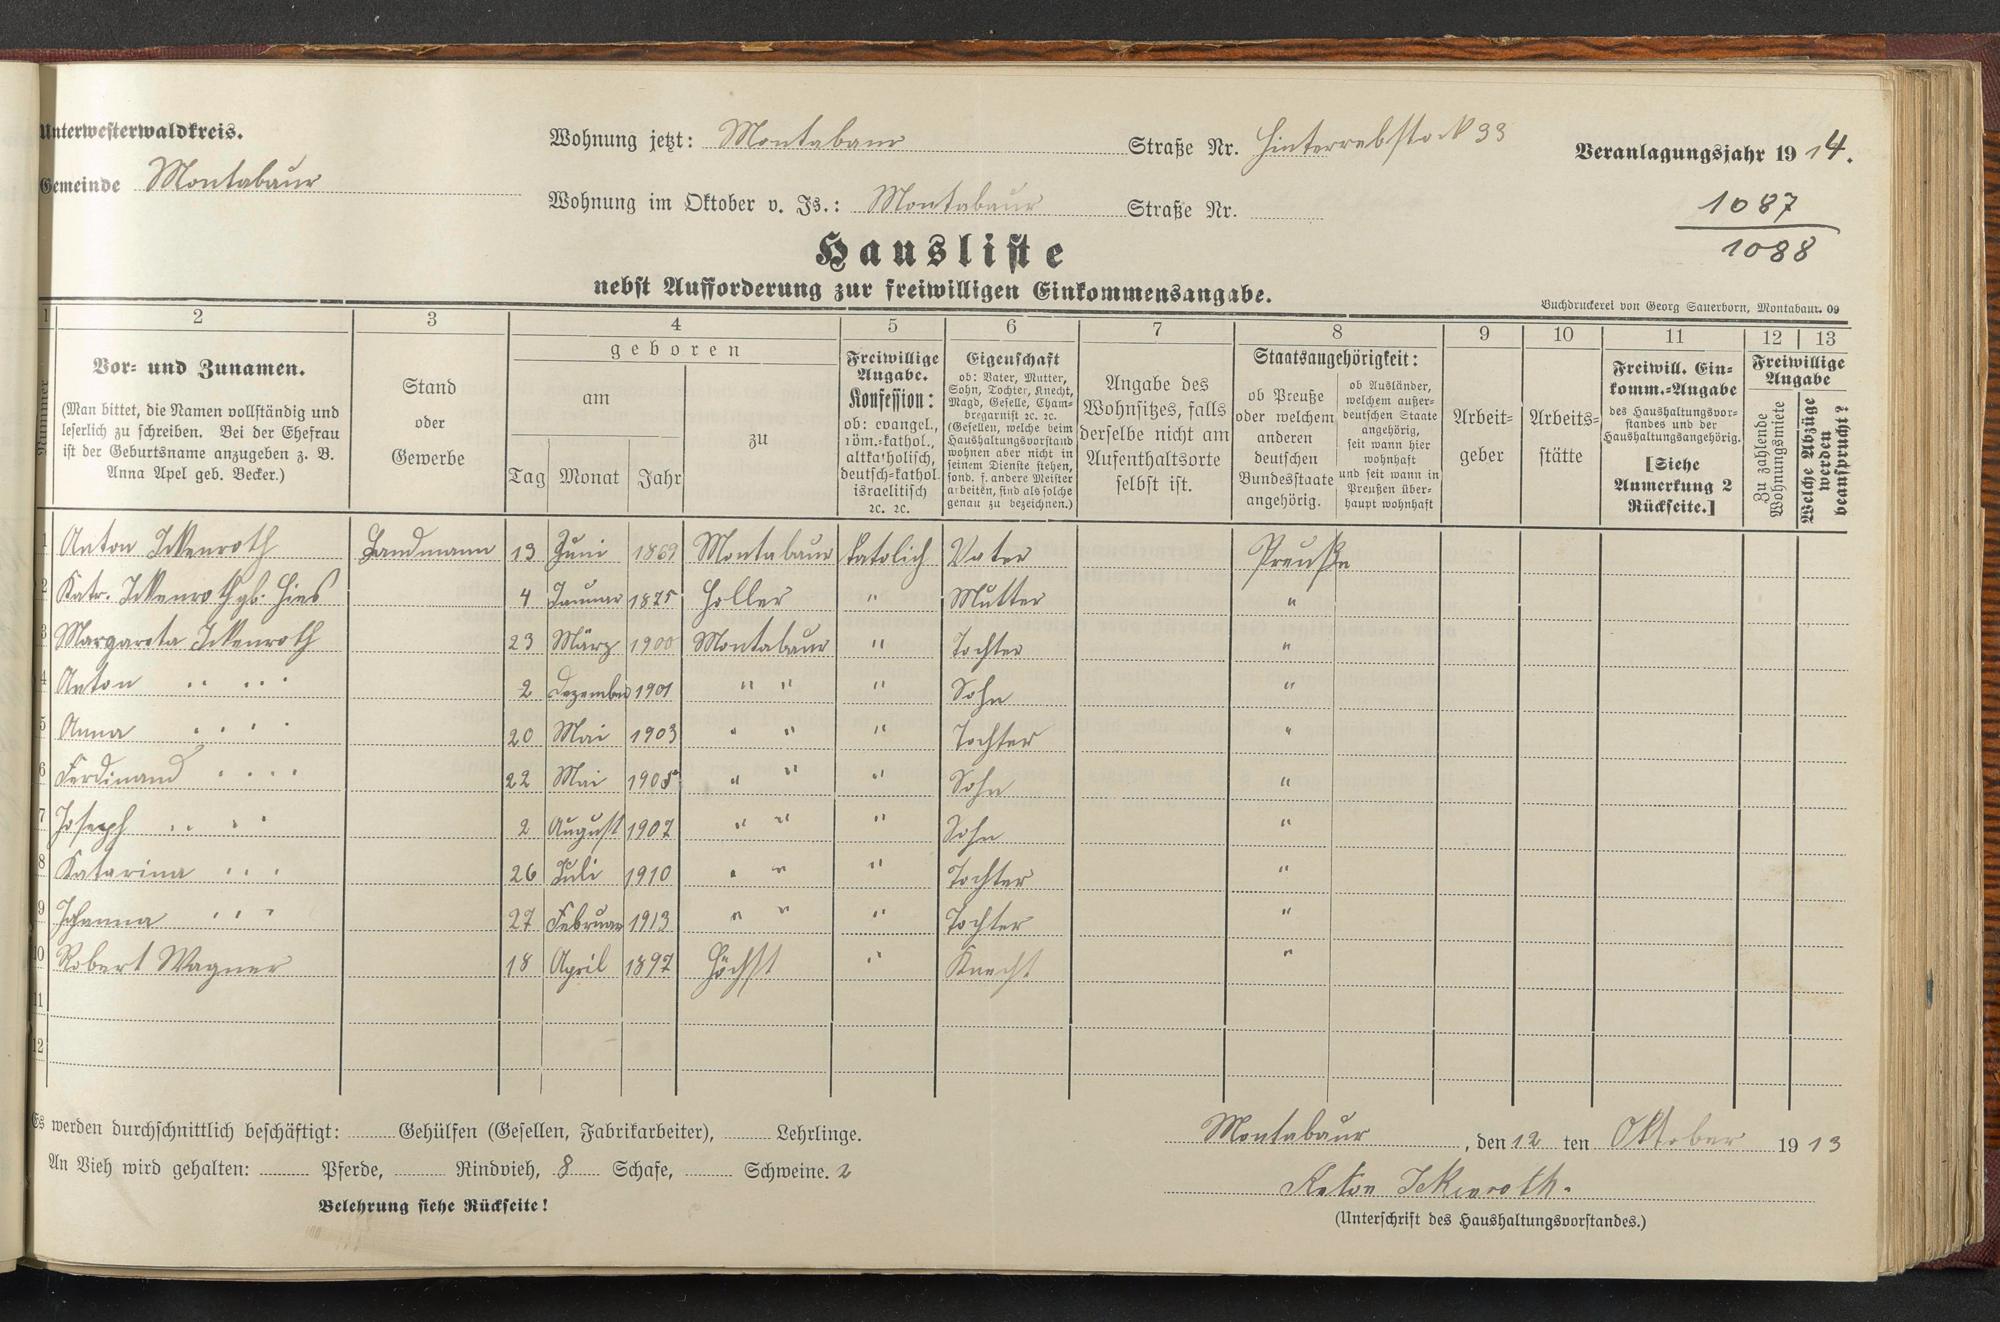 Unterwesterwaldkreis.
Gemeinde Montabaur
Wohnung jetzt: Montabaur Straße Nr. Hinterrebstock 33
Wohnung im Oktober v. Js.: Montabaur Straße Nr.
Veranlagungsjahr 1914.
1087
1088
Hausliste
nebst Aufforderung zur freiwilligen Einkommensangabe.
Buchdruckerei von Georg Sauerborn, Montabaur. 09
1 2 3 4 5 6 7 8 9 10 11 12 13
Nummer
Vor- und Zunamen.
(Man bittet, die Namen vollständig und
leserlich zu schreiben. Bei der Ehefrau
ist der Geburtsname anzugeben z. B.
Anna Apel geb. Becker.)
Stand
oder
Gewerbe
geboren
am
Tag Monat Jahr
zu
Freiwillige
Angabe.
Konfession:
ob: evangel.,
röm.-kathol.,
altkatholisch,
deutsch-kathol.
israelitisch
ec. ec.
Eigenschaft
ob: Vater, Mutter,
Sohn, Tochter, Knecht,
Magd, Geselle, Cham-
bregarnist ec. ec.
(Gesellen, welche beim
Haushaltungsvorstand
wohnen aber nicht in
seinem Dienste stehen,
sond. f. andere Meister
arbeiten, sind als solche
genau zu bezeichnen.)
Angabe des
Wohnsitzes, falls
derselbe nicht am
Aufenthaltsorte
selbst ist.
Staatsangehörigkeit:
ob Preuße
oder welchem
anderen
deutschen
Bundesstaate
angehörig.
ob Ausländer,
welchem außer-
deutschen Staate
angehörig,
seit wann hier
wohnhaft
und seit wann in
Preußen über-
haupt wohnhaft
Arbeit-
geber
Arbeits-
stätte
Freiwill. Ein-
komm.-Angabe
des Haushaltungsvor-
standes und der
Haushaltungsangehörig.
[Siehe
Anmerkung 2
Rückseite.]
Freiwillige
Angabe
Zu zahlende
Wohnungsmiete
Welche Abzüge
werden
beansprucht?
1 Anton Ickenroth Landmann 13 Juni 1869 Montabaur katolich Vater Preuße
2 Katr. Ickenroth gb. Hies 4 Januar 1875 Holler " Mutter "
3 Margareta Ickenroth 23 März 1900 Montabaur " Tochter "
4 Anton " " 2 Dezember 1901 " " " Sohn "
5 Anna " " 20 Mai 1903 " " " Tochter "
6 Ferdinand " " 22 Mai 1905 " " " Sohn "
7 Joseph " " 2 August 1907 " " " Sohn "
8 Katarina " " 26 Juli 1910 " " " Tochter "
9 Johanna " " 27 Februar 1913 " " " Tochter "
10 Robert Wagner 18 April 1897 Höchst " Knecht "
11
12
Es werden durchschnittlich beschäftigt: Gehülfen (Gesellen, Fabrikarbeiter), Lehrlinge.
An Vieh wird gehalten: Pferde, Rindvieh, 8 Schafe, Schweine. 2
Belehrung siehe Rückseite!
Montabaur, den 12 ten Oktober 1913
Anton Ickenroth.
(Unterschrift des Haushaltungsvorstandes.)